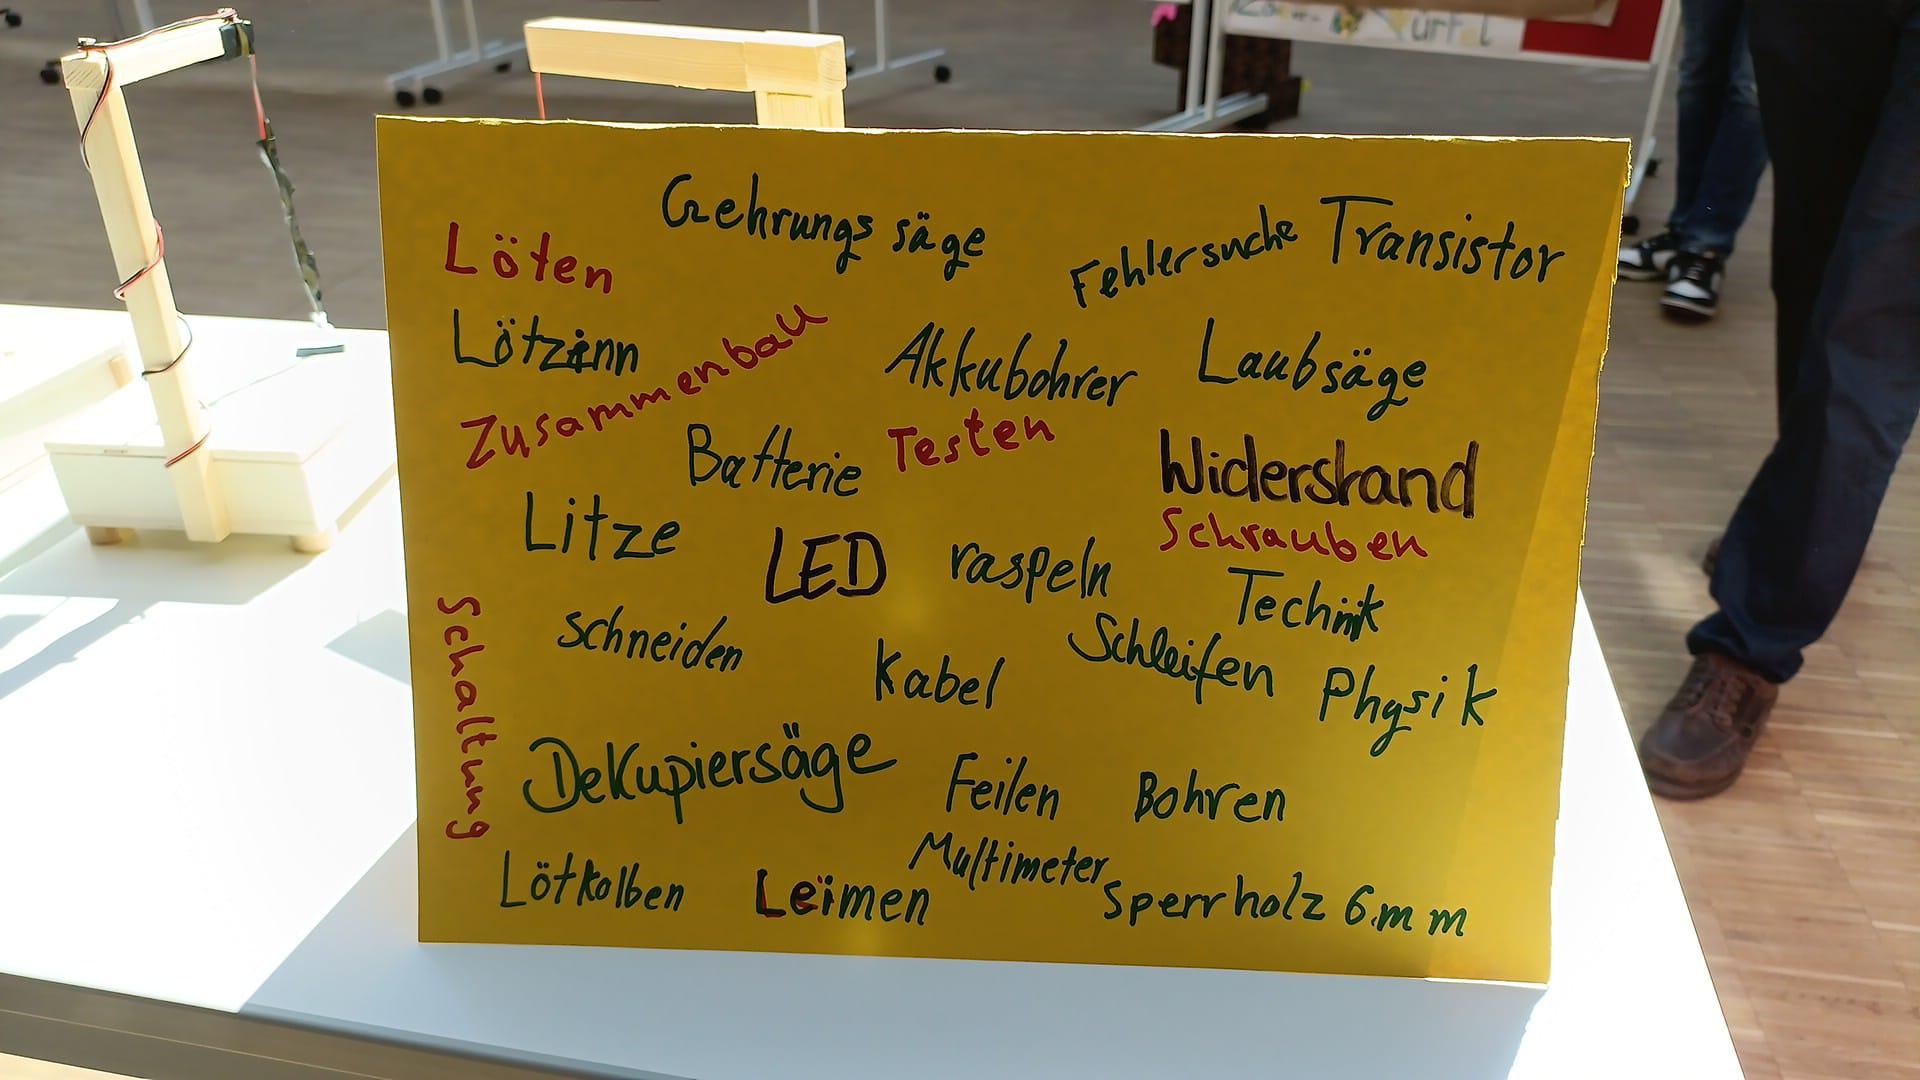 Gehrungssäge
Löten
Fehlersuche
Transistor
Lötzinn
Zusammenbau
Akkubohrer
Laubsäge
Batterie
Testen
Widerstand
Litze
LED
raspeln
Schrauben
Technik
schneiden
Kabel
Schleifen
Physik
Schaltung
Dekupiersäge
Feilen
Bohren
Multimeter
Lötkolben
Leimen
Sperrholz 6mm